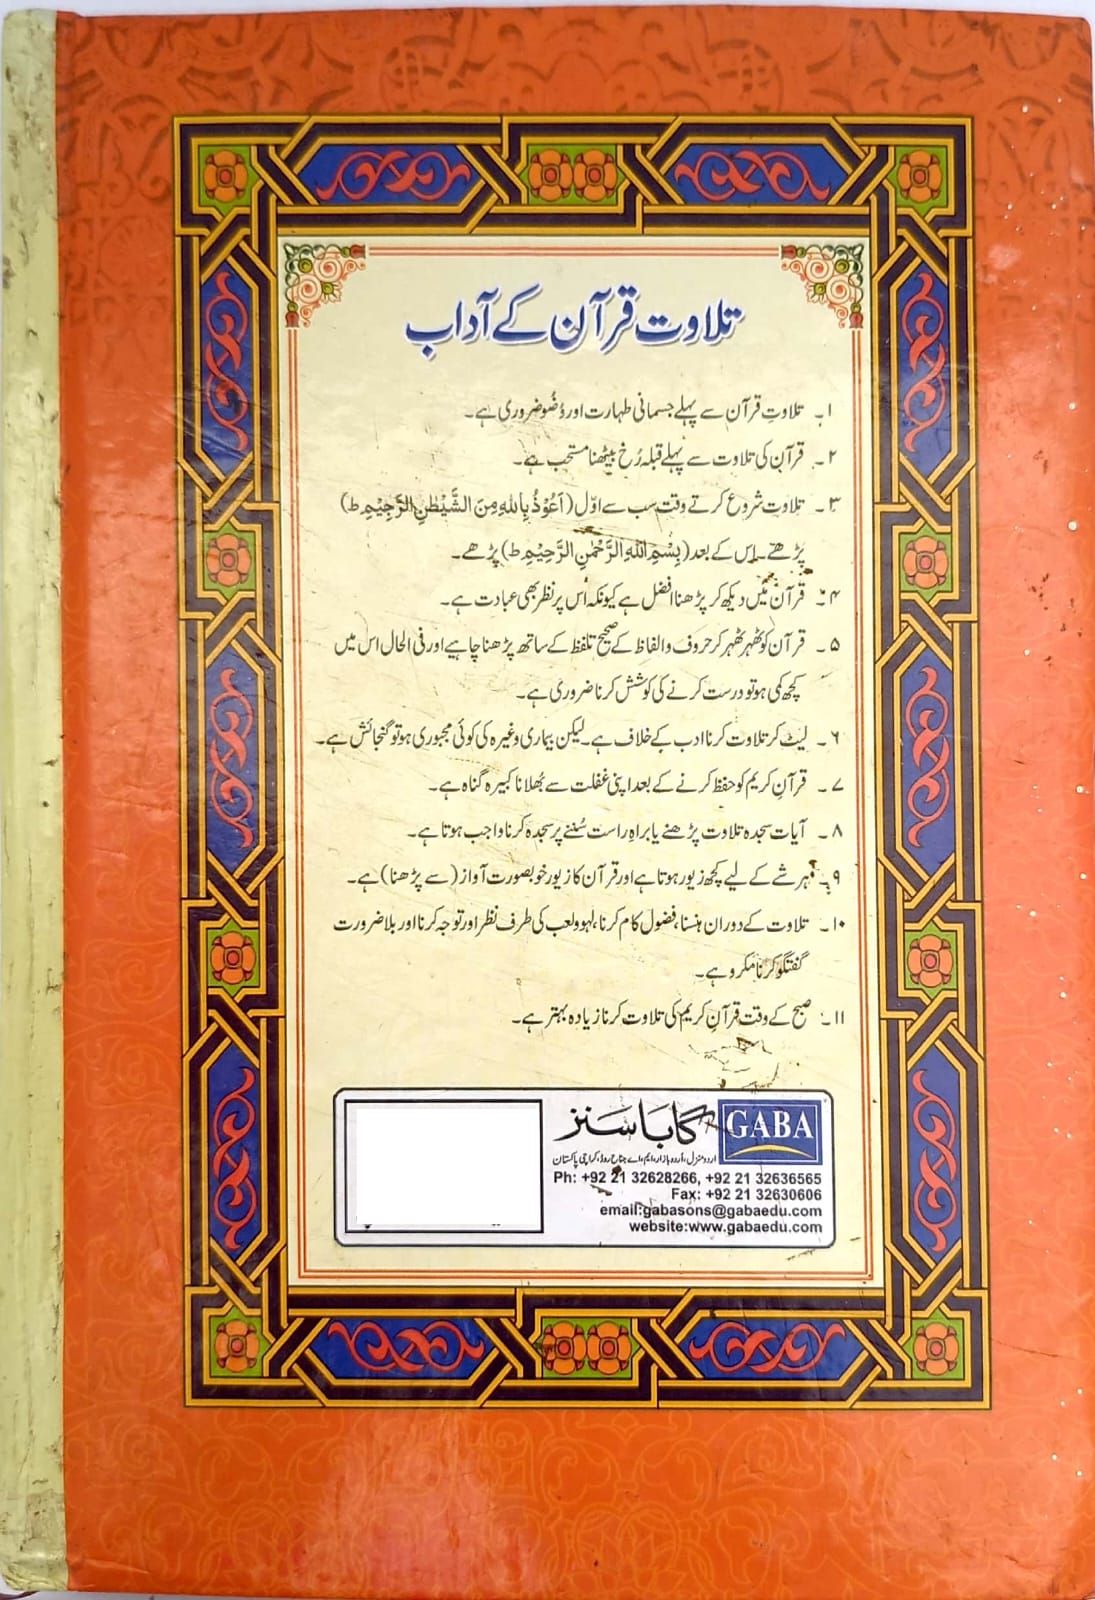 تلاوت قرآن کے آداب
۱۔ تلاوتِ قرآن سے پہلے جسمانی طہارت اور وُضو ضروری ہے۔
۲۔ قرآن کی تلاوت سے پہلے قبلہ رُخ بیٹھنا مستحب ہے۔
۳۔ تلاوت شروع کرتے وقت سب سے اوّل (اَعُوْذُ بِاللّٰهِ مِنَ الشَّيْطٰنِ الرَّجِيْمِ ط)
پڑھے۔ اس کے بعد (بِسْمِ اللّٰهِ الرَّحْمٰنِ الرَّحِيْمِ ط) پڑھے۔
۴۔ قرآن میں دیکھ کر پڑھنا افضل ہے کیونکہ اس پر نظر بھی عبادت ہے۔
۵۔ قرآن کو ٹھہر ٹھہر کر حروف و الفاظ کے صحیح تلفظ کے ساتھ پڑھنا چاہیے اور فی الحال اس میں
کچھ کمی ہو تو درست کرنے کی کوشش کرنا ضروری ہے۔
۶۔ لیٹ کر تلاوت کرنا ادب کے خلاف ہے۔ لیکن بیماری وغیرہ کی کوئی مجبوری ہو تو گنجائش ہے۔
۷۔ قرآنِ کریم کو حفظ کرنے کے بعد اپنی غفلت سے بُھلانا کبیرہ گناہ ہے۔
۸۔ آیات سجدہ تلاوت پڑھنے یا براہِ راست سُننے پر سجدہ کرنا واجب ہوتا ہے۔
۹۔ ہر شے کے لیے کچھ زیور ہوتا ہے اور قرآن کا زیور خوبصورت آواز (سے پڑھنا) ہے۔
۱۰۔ تلاوت کے دوران ہنسنا، فضول کام کرنا، لہو ولعب کی طرف نظر اور توجہ کرنا اور بلا ضرورت
گفتگو کرنا مکروہ ہے۔
۱۱۔ صبح کے وقت قرآنِ کریم کی تلاوت کرنا زیادہ بہتر ہے۔
گابا سنز GABA
اردو منزل، اردو بازار، ایم۔اے جناح روڈ، کراچی پاکستان
Ph: +92 21 32628266, +92 21 32636565
Fax: +92 21 32630606
email:gabasons@gabaedu.com
website:www.gabaedu.com